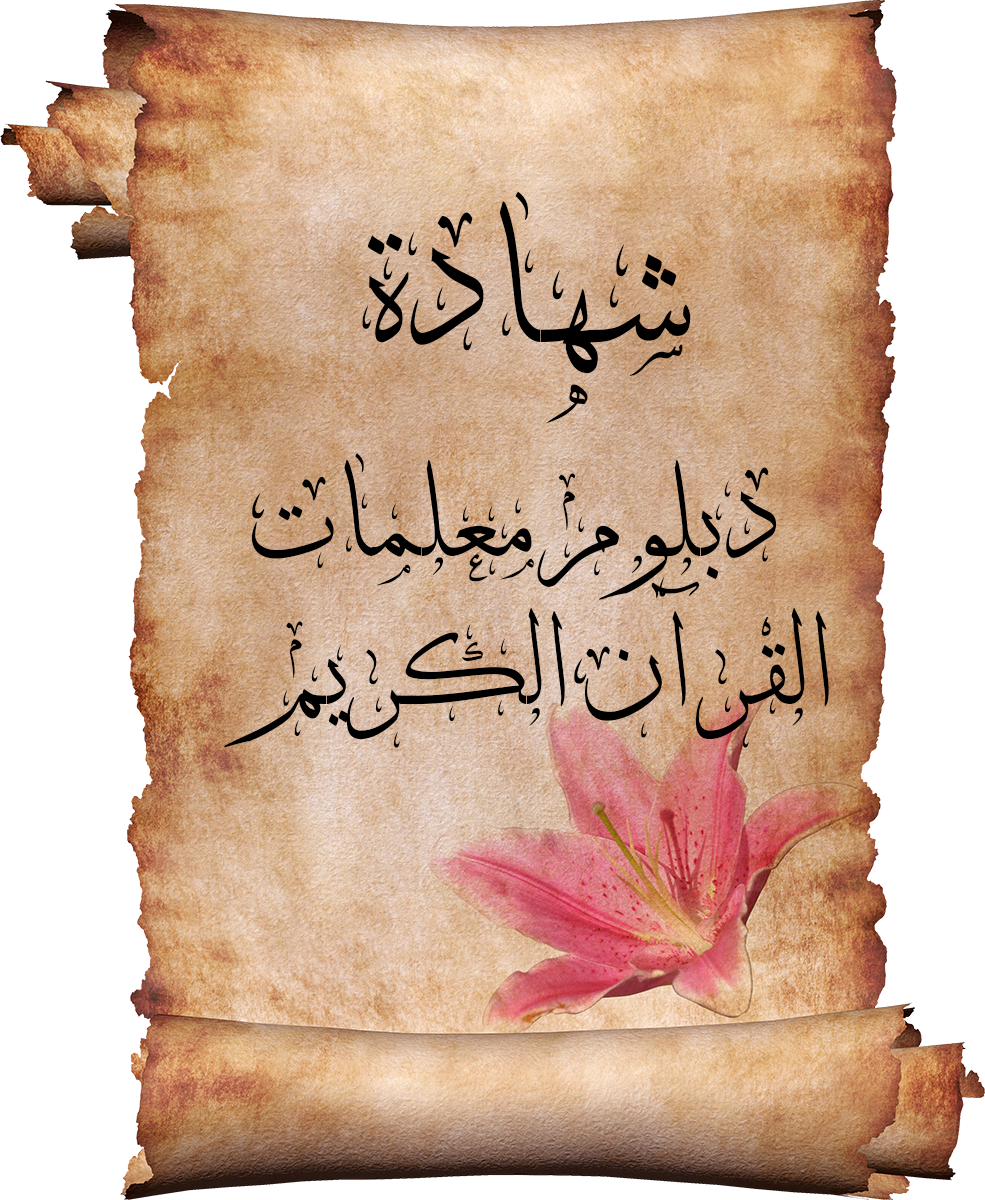 شهادة
دبلوم معلمات
القرآن الكريم